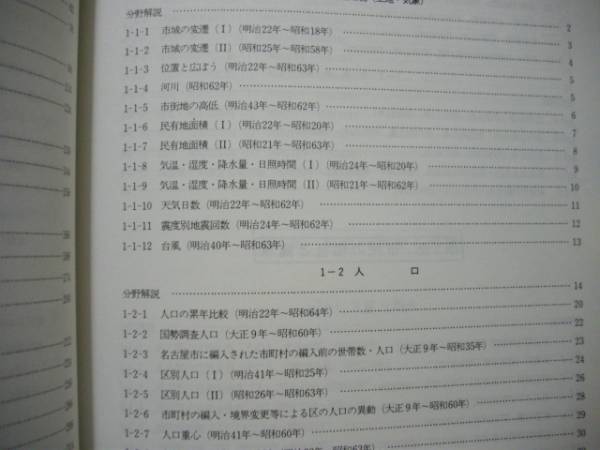 分野解説 2
1-1-1 市域の変遷(I)(明治22年~昭和18年) 3
1-1-2 市域の変遷(II)(昭和25年~昭和58年) 4
1-1-3 位置と広ぼう(明治22年~昭和63年) 5
1-1-4 河川(昭和62年) 5
1-1-5 市街地の高低(明治43年~昭和62年) 6
1-1-6 民有地面積(I)(明治22年~昭和20年) 7
1-1-7 民有地面積(II)(昭和21年~昭和63年) 8
1-1-8 気温・湿度・降水量・日照時間(I)(明治24年~昭和20年) 9
1-1-9 気温・湿度・降水量・日照時間(II)(昭和21年~昭和62年) 10
1-1-10 天気日数(明治22年~昭和62年) 11
1-1-11 震度別地震回数(明治24年~昭和62年) 12
1-1-12 台風(明治40年~昭和63年) 13
1-2 人口
分野解説 14
1-2-1 人口の累年比較(明治22年~昭和64年) 20
1-2-2 国勢調査人口(大正9年~昭和60年) 22
1-2-3 名古屋市に編入された市町村の編入前の世帯数・人口(大正9年~昭和35年) 23
1-2-4 区別人口(I)(明治41年~昭和25年) 24
1-2-5 区別人口(II)(昭和26年~昭和63年) 26
1-2-6 市町村の編入・境界変更等による区の人口の異動(大正9年~昭和60年) 28
1-2-7 人口重心(明治41年~昭和60年) 29
30